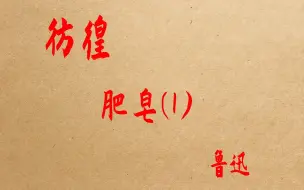 彷徨
肥皂(1)
鲁迅